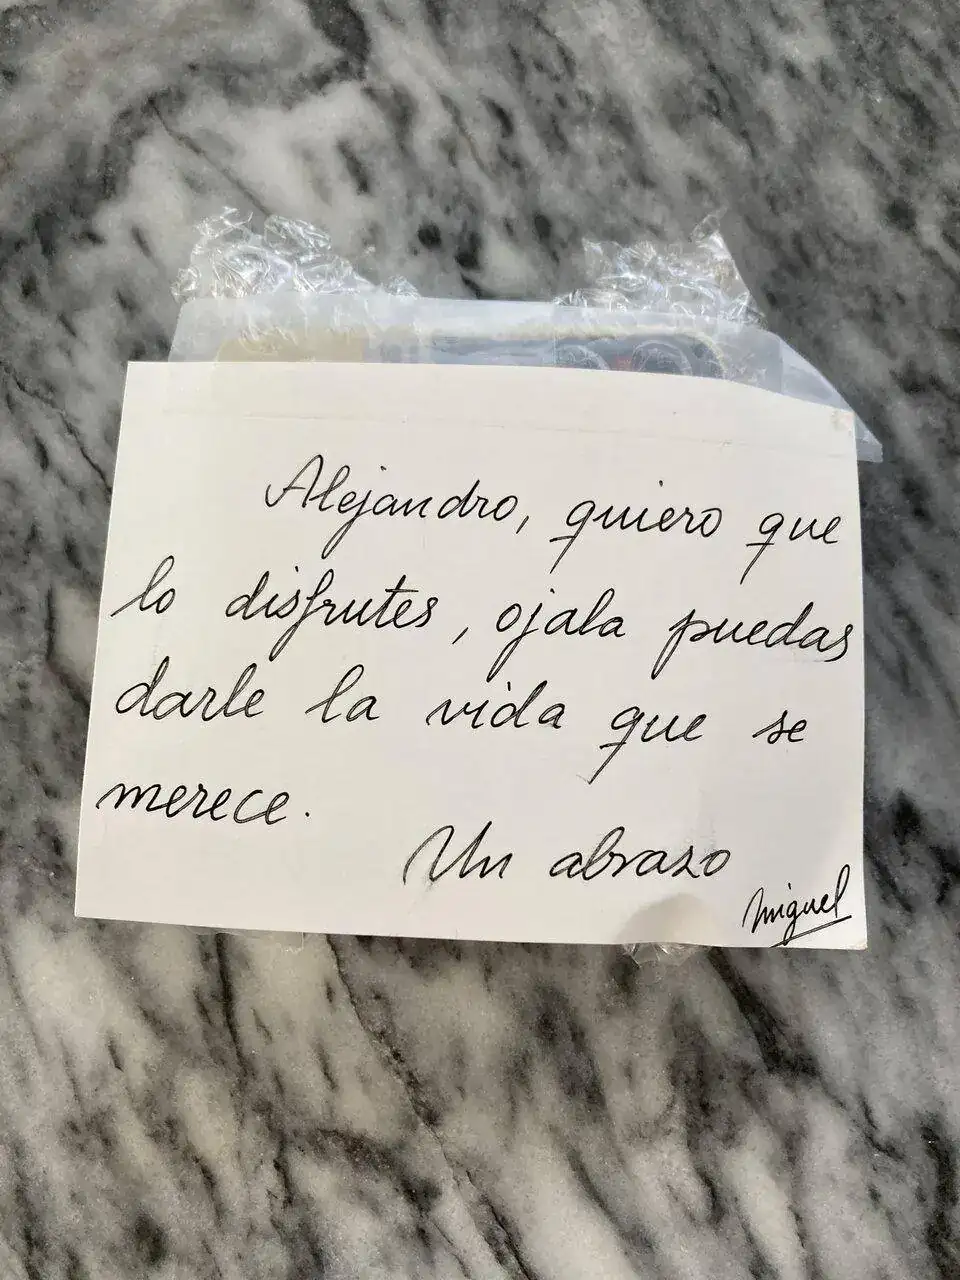 Alejandro, quiero que
lo disfrutes, ojala puedas
darle la vida que se
merece.
Un abrazo
Miguel